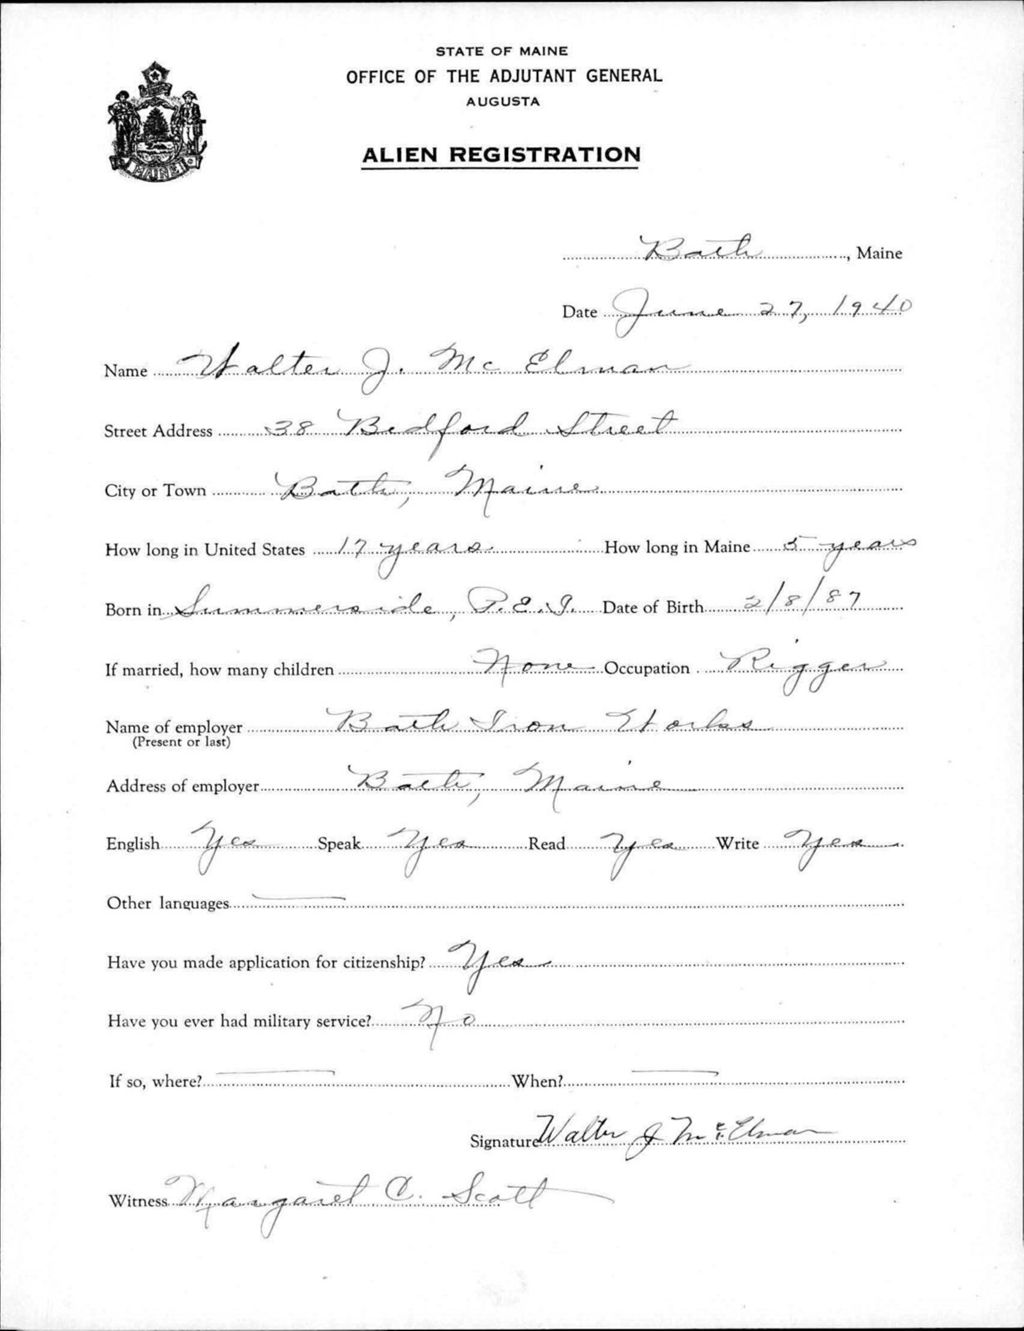 STATE OF MAINE
OFFICE OF THE ADJUTANT GENERAL
AUGUSTA
ALIEN REGISTRATION
MAINE
Bath, Maine
Date June 27, 1940
Name Walter J. McElman
Street Address 38 Bedford Street
City or Town Bath, Maine
How long in United States 17 years How long in Maine 5 years
Born in Summerside, P.E.I. Date of Birth 2/8/87
If married, how many children None Occupation Rigger
Name of employer Bath Iron Works
(Present or last)
Address of employer Bath, Maine
English Yes Speak Yes Read Yes Write Yes
Other languages
Have you made application for citizenship? Yes
Have you ever had military service? No
If so, where? When?
Signature Walter J McElman
Witness Margaret C. Scott